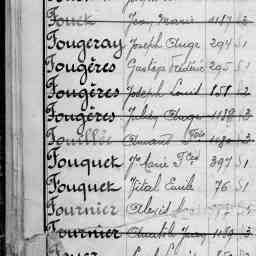 Fouek Jean Marie 1187 3
Fougeray Joseph Auge 294 51
Fougères Gustave Frédéric 295 51
Fougères Joseph Louis 151 2
Fougères Jules Auge 1188 3
Fouillée Armand Fois 3
Fouquet Marie Fed 397 51
Fouquet Vital Emile 76 51
Fournier Alexis
Fournier 1189 3